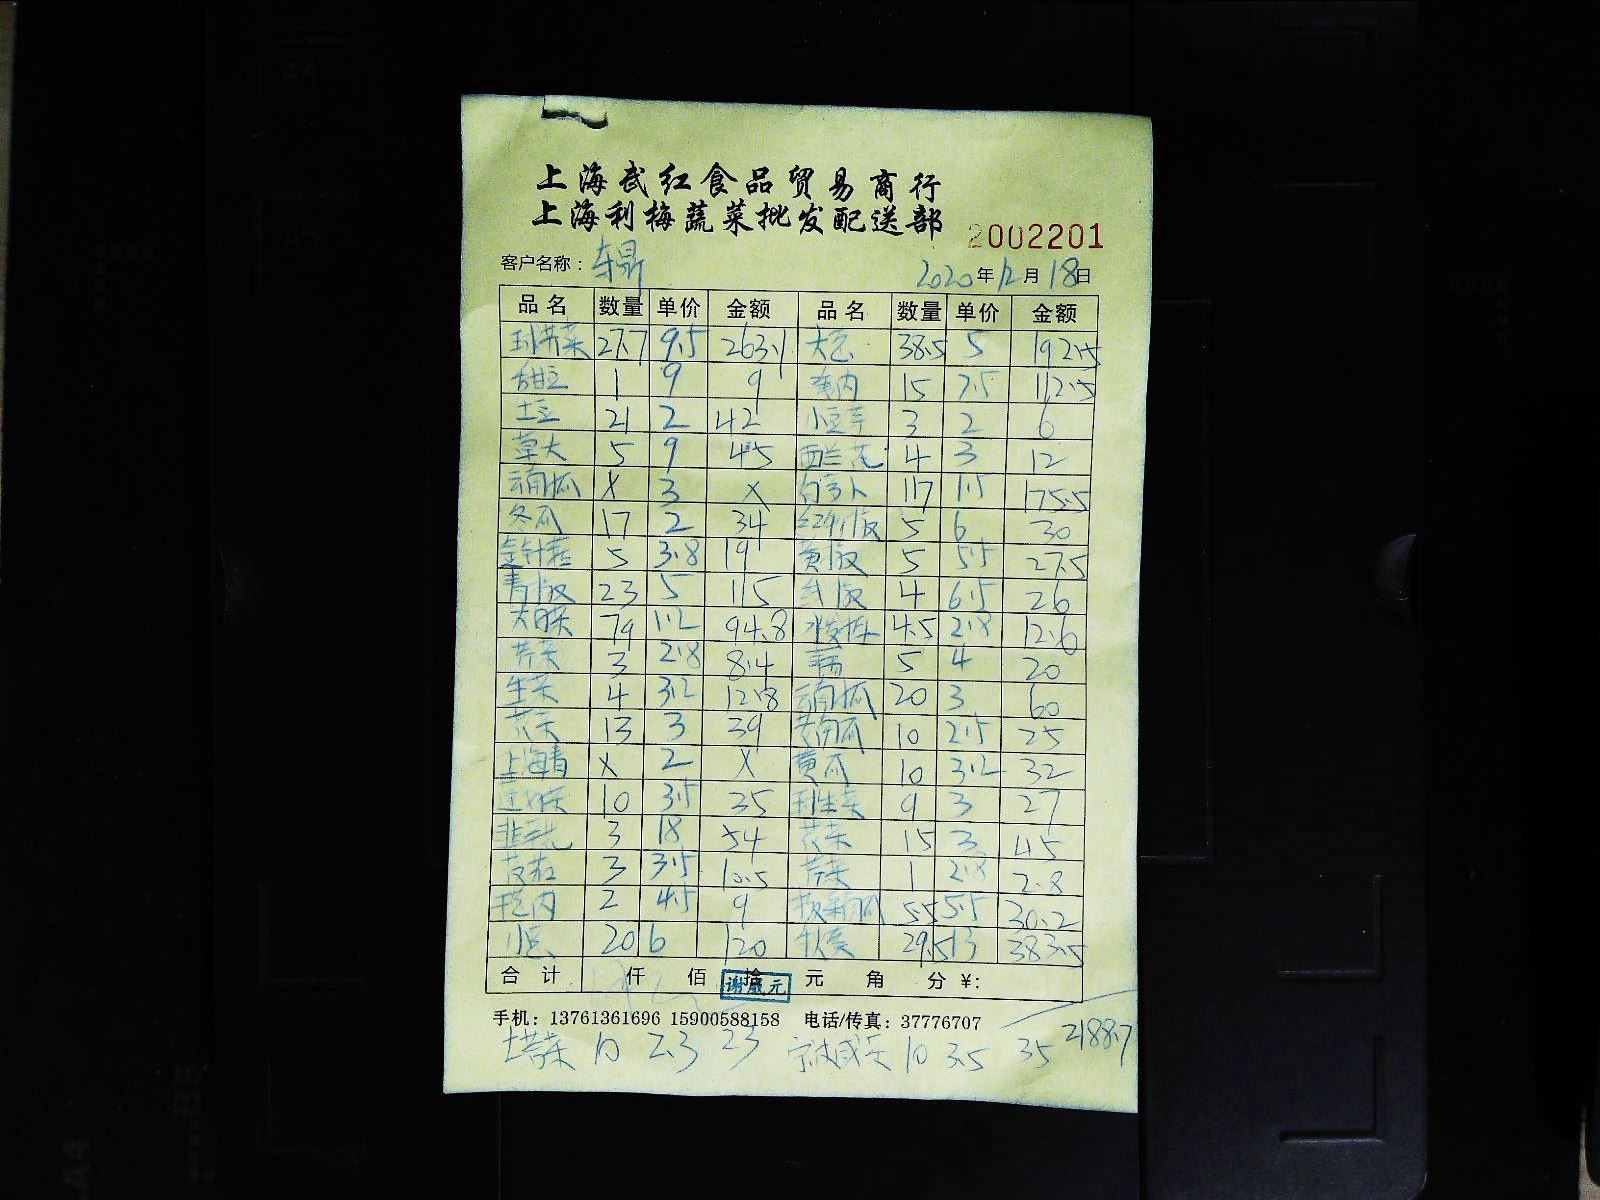 上海武红食品贸易商行
上海利梅蔬菜批发配送部
2002201
客户名称：东鼎 2020年12月18日
品名 数量 单价 金额 品名 数量 单价 金额
27.7 9.5 263.1 大 38.5 5 192.5
甜豆 1 9 9 15 7.5 112.5
土豆 21 2 42 小豆芽 3 2 6
草大 5 9 45 西兰花 4 3 12
云南瓜 X 3 X 白萝卜 117 1.5 175.5
冬瓜 17 2 34 红椒 5 6 30
金针菇 5 3.8 19 黄椒 5 5.5 27.5
青椒 23 5 115 4 6.5 26
大白菜 79 1.2 94.8 4.5 2.8 12.6
芹菜 3 2.8 8.4 5 4 20
生菜 4 3.2 12.8 云南瓜 20 3 60
花菜 13 3 39 老南瓜 10 2.5 25
上海青 X 2 X 黄瓜 10 3.2 32
10 3.5 35 球生菜 9 3 27
3 18 54 花菜 15 3 45
茭菇 3 3.5 10.5 芹菜 1 2.8 2.8
2 4.5 9 5.5 5.5 30.2
小 20 6 120 29.5 13 383.5
合计 仟 佰 拾 元 角 分 ¥:
谢晟元
手机：13761361696 15900588158 电话/传真：37776707
塔菜 10 2.3 23 咸菜 10 3.5 35 2188.7